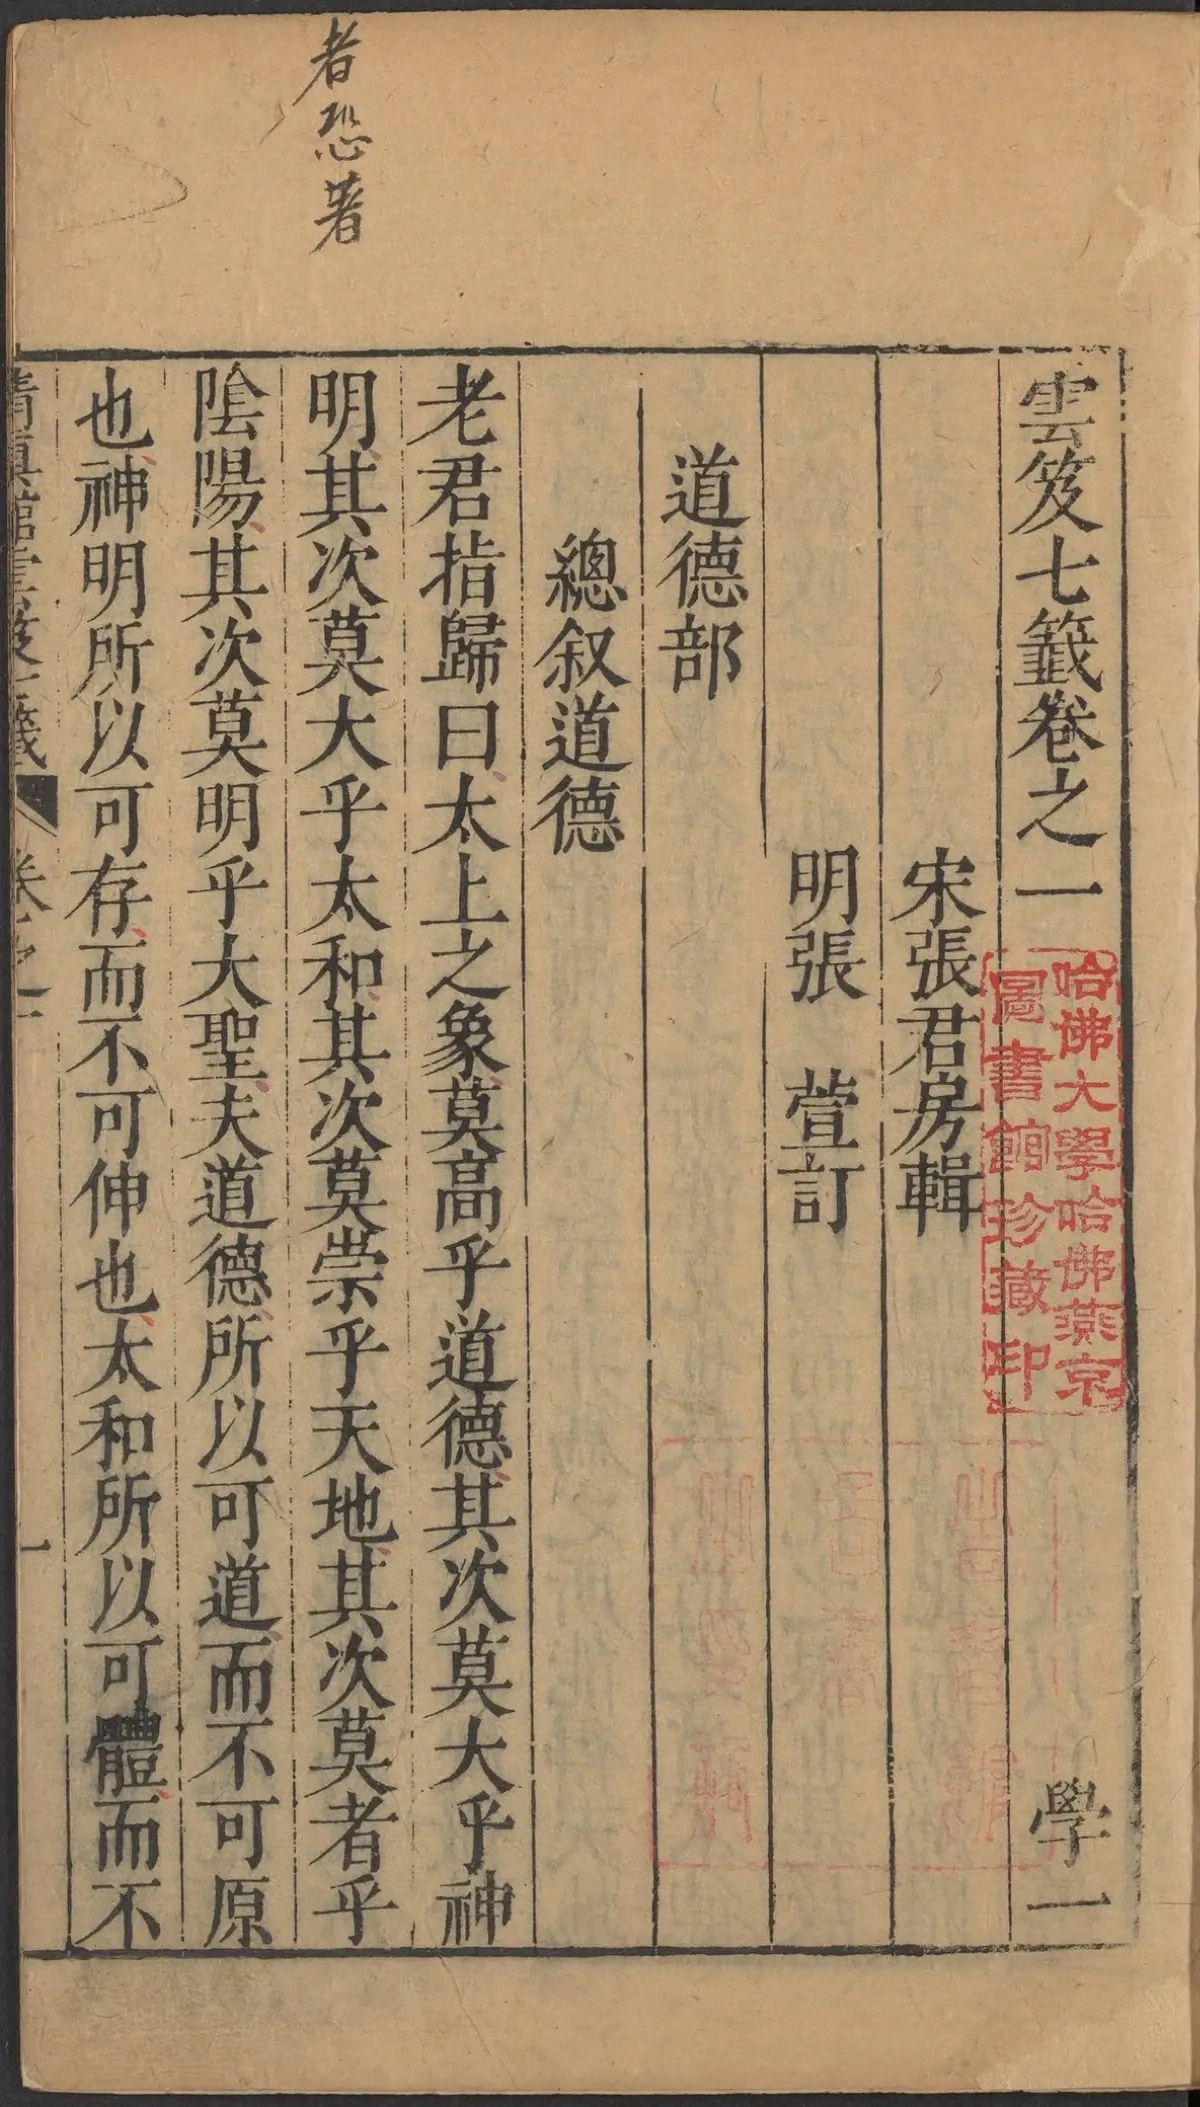 雲笈七籤卷之一 學一
宋張君房輯
明張 萱訂
道德部
總叙道德
老君指歸曰太上之象莫高乎道德其次莫大乎神
明其次莫大乎太和其次莫崇乎天地其次莫者乎
陰陽其次莫明乎大聖夫道德所以可道而不可原
也神明所以可存而不可伸也太和所以可體而不
清真館雲笈七籤 卷之一 一
者恐著
哈佛大學哈佛燕京
圖書館珍藏印